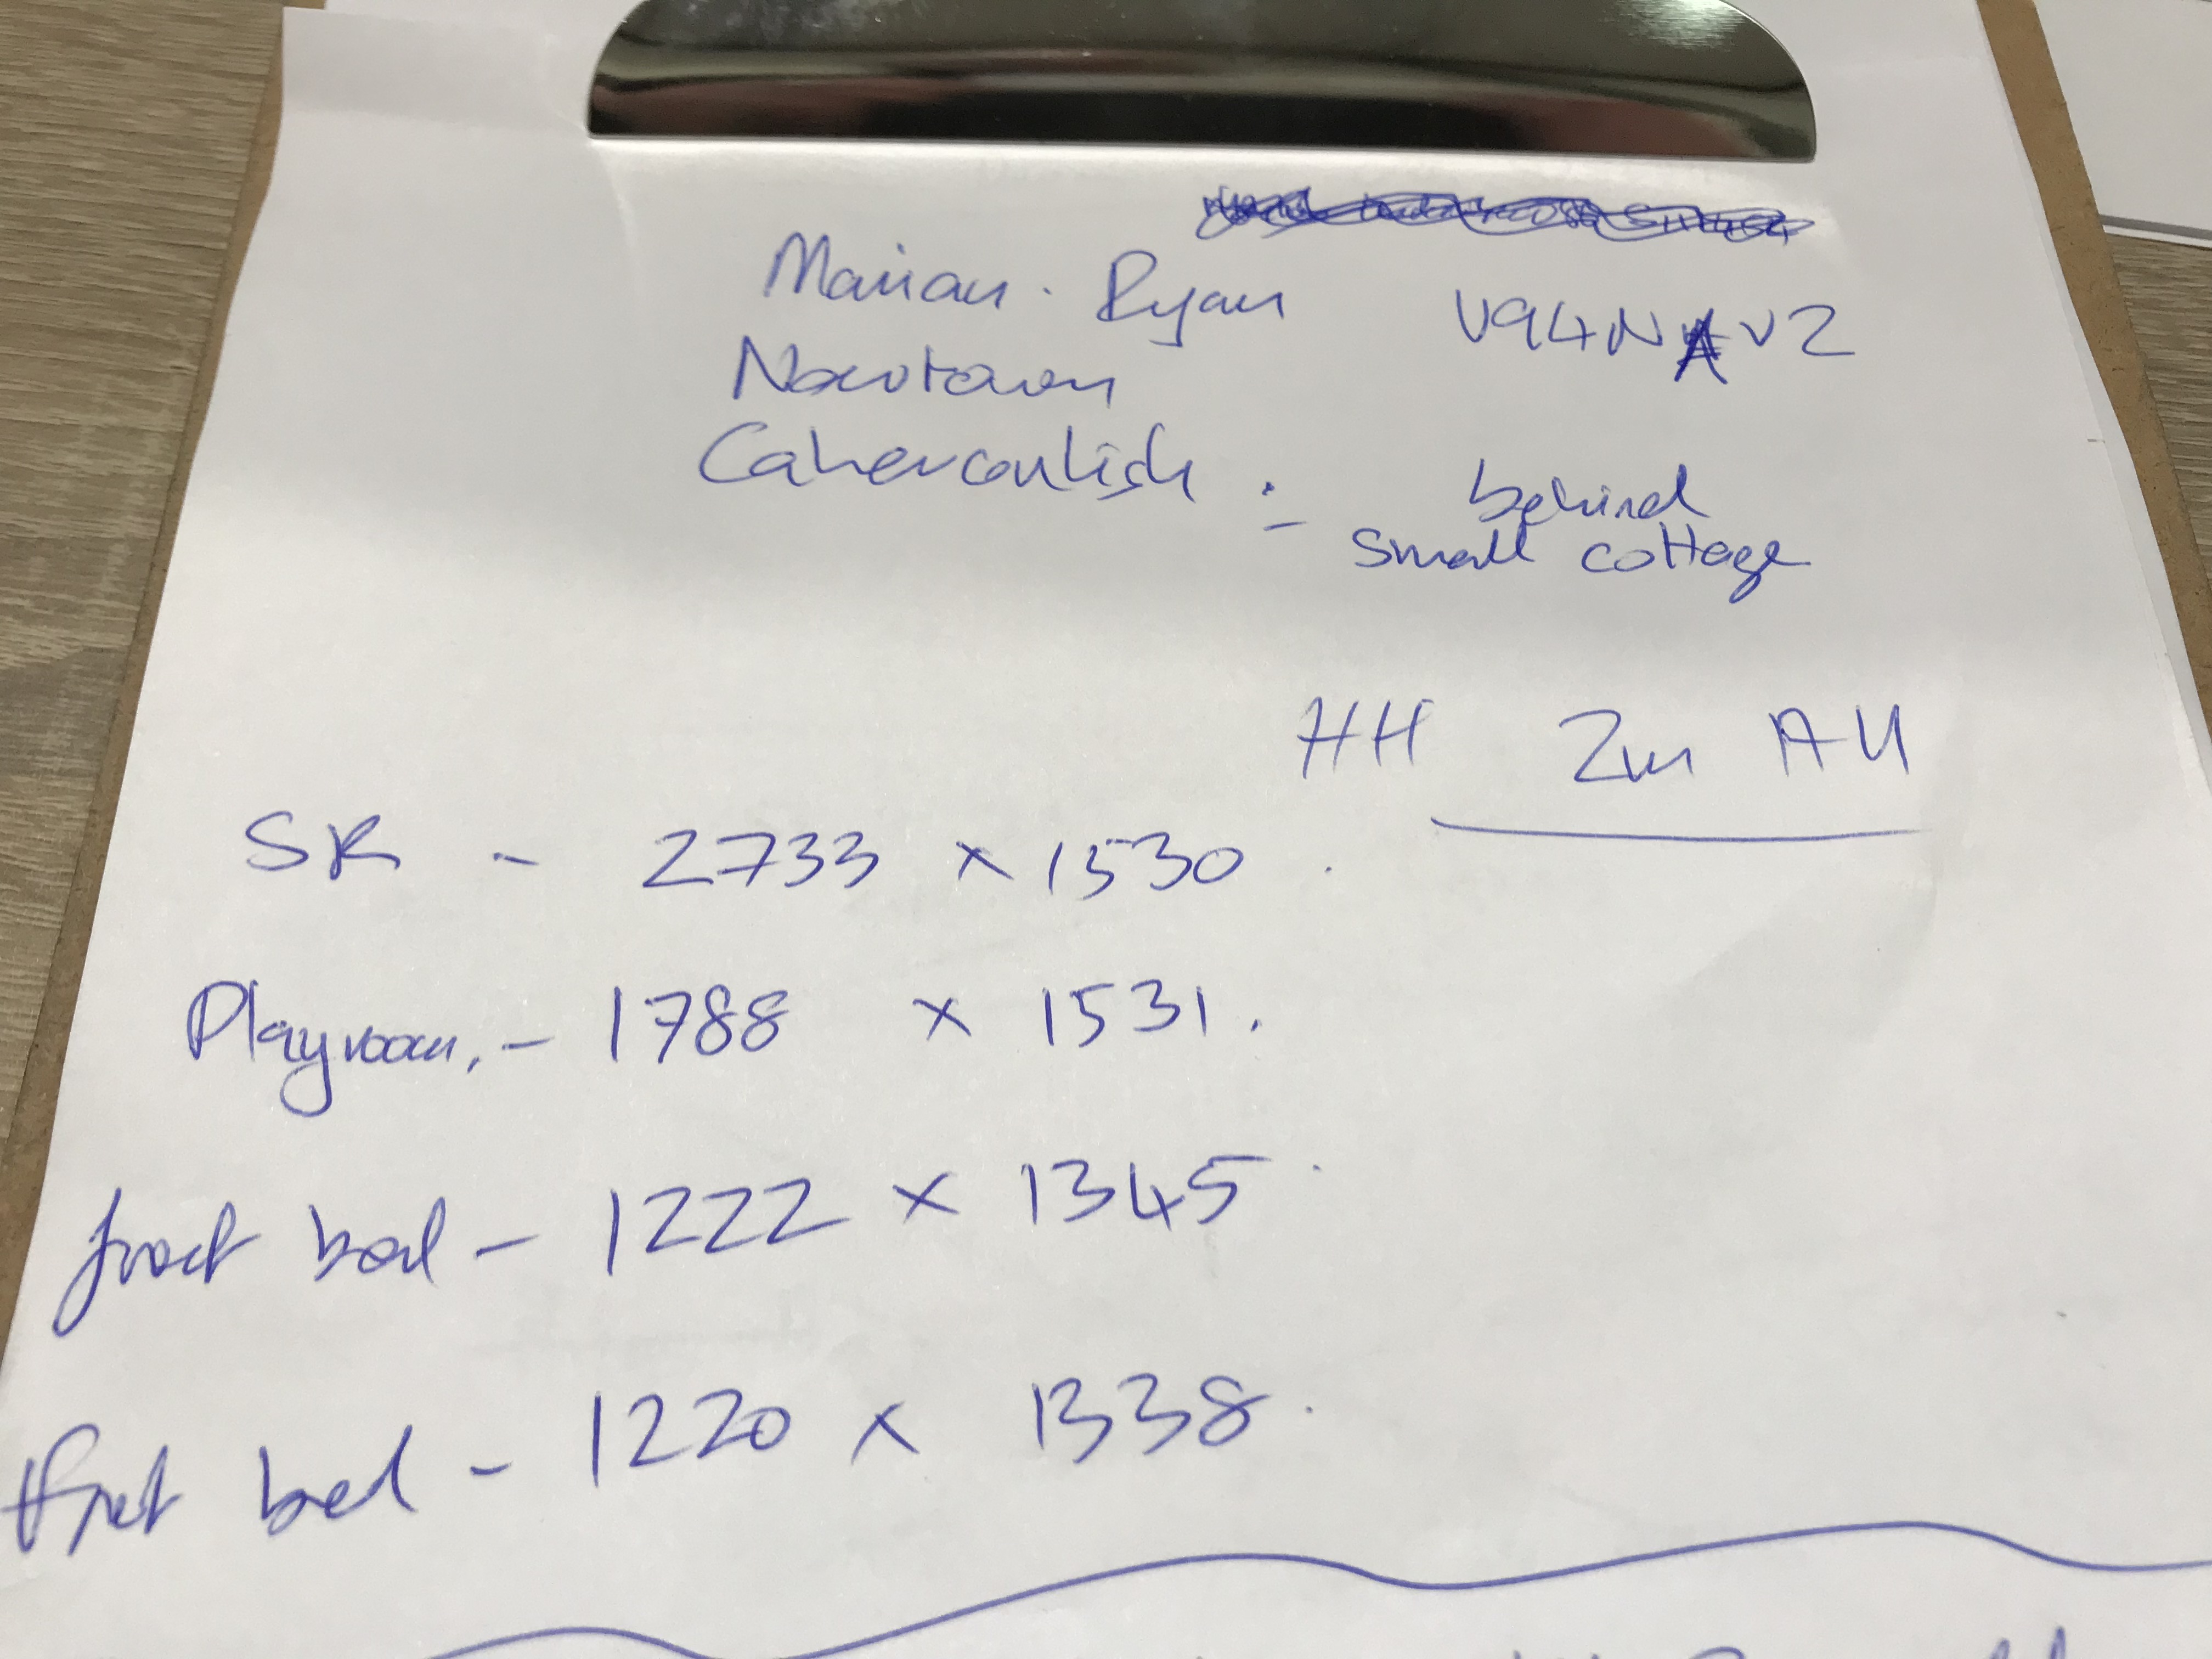 Marian. Ryan V94NAV2
Newtown
Caherconlish :- behind
small cottage
HH 2m AH
SR - 2733 x 1530.
Playroom. - 1788 x 1531.
front bed - 1222 x 1345.
front bed - 1220 x 1338.